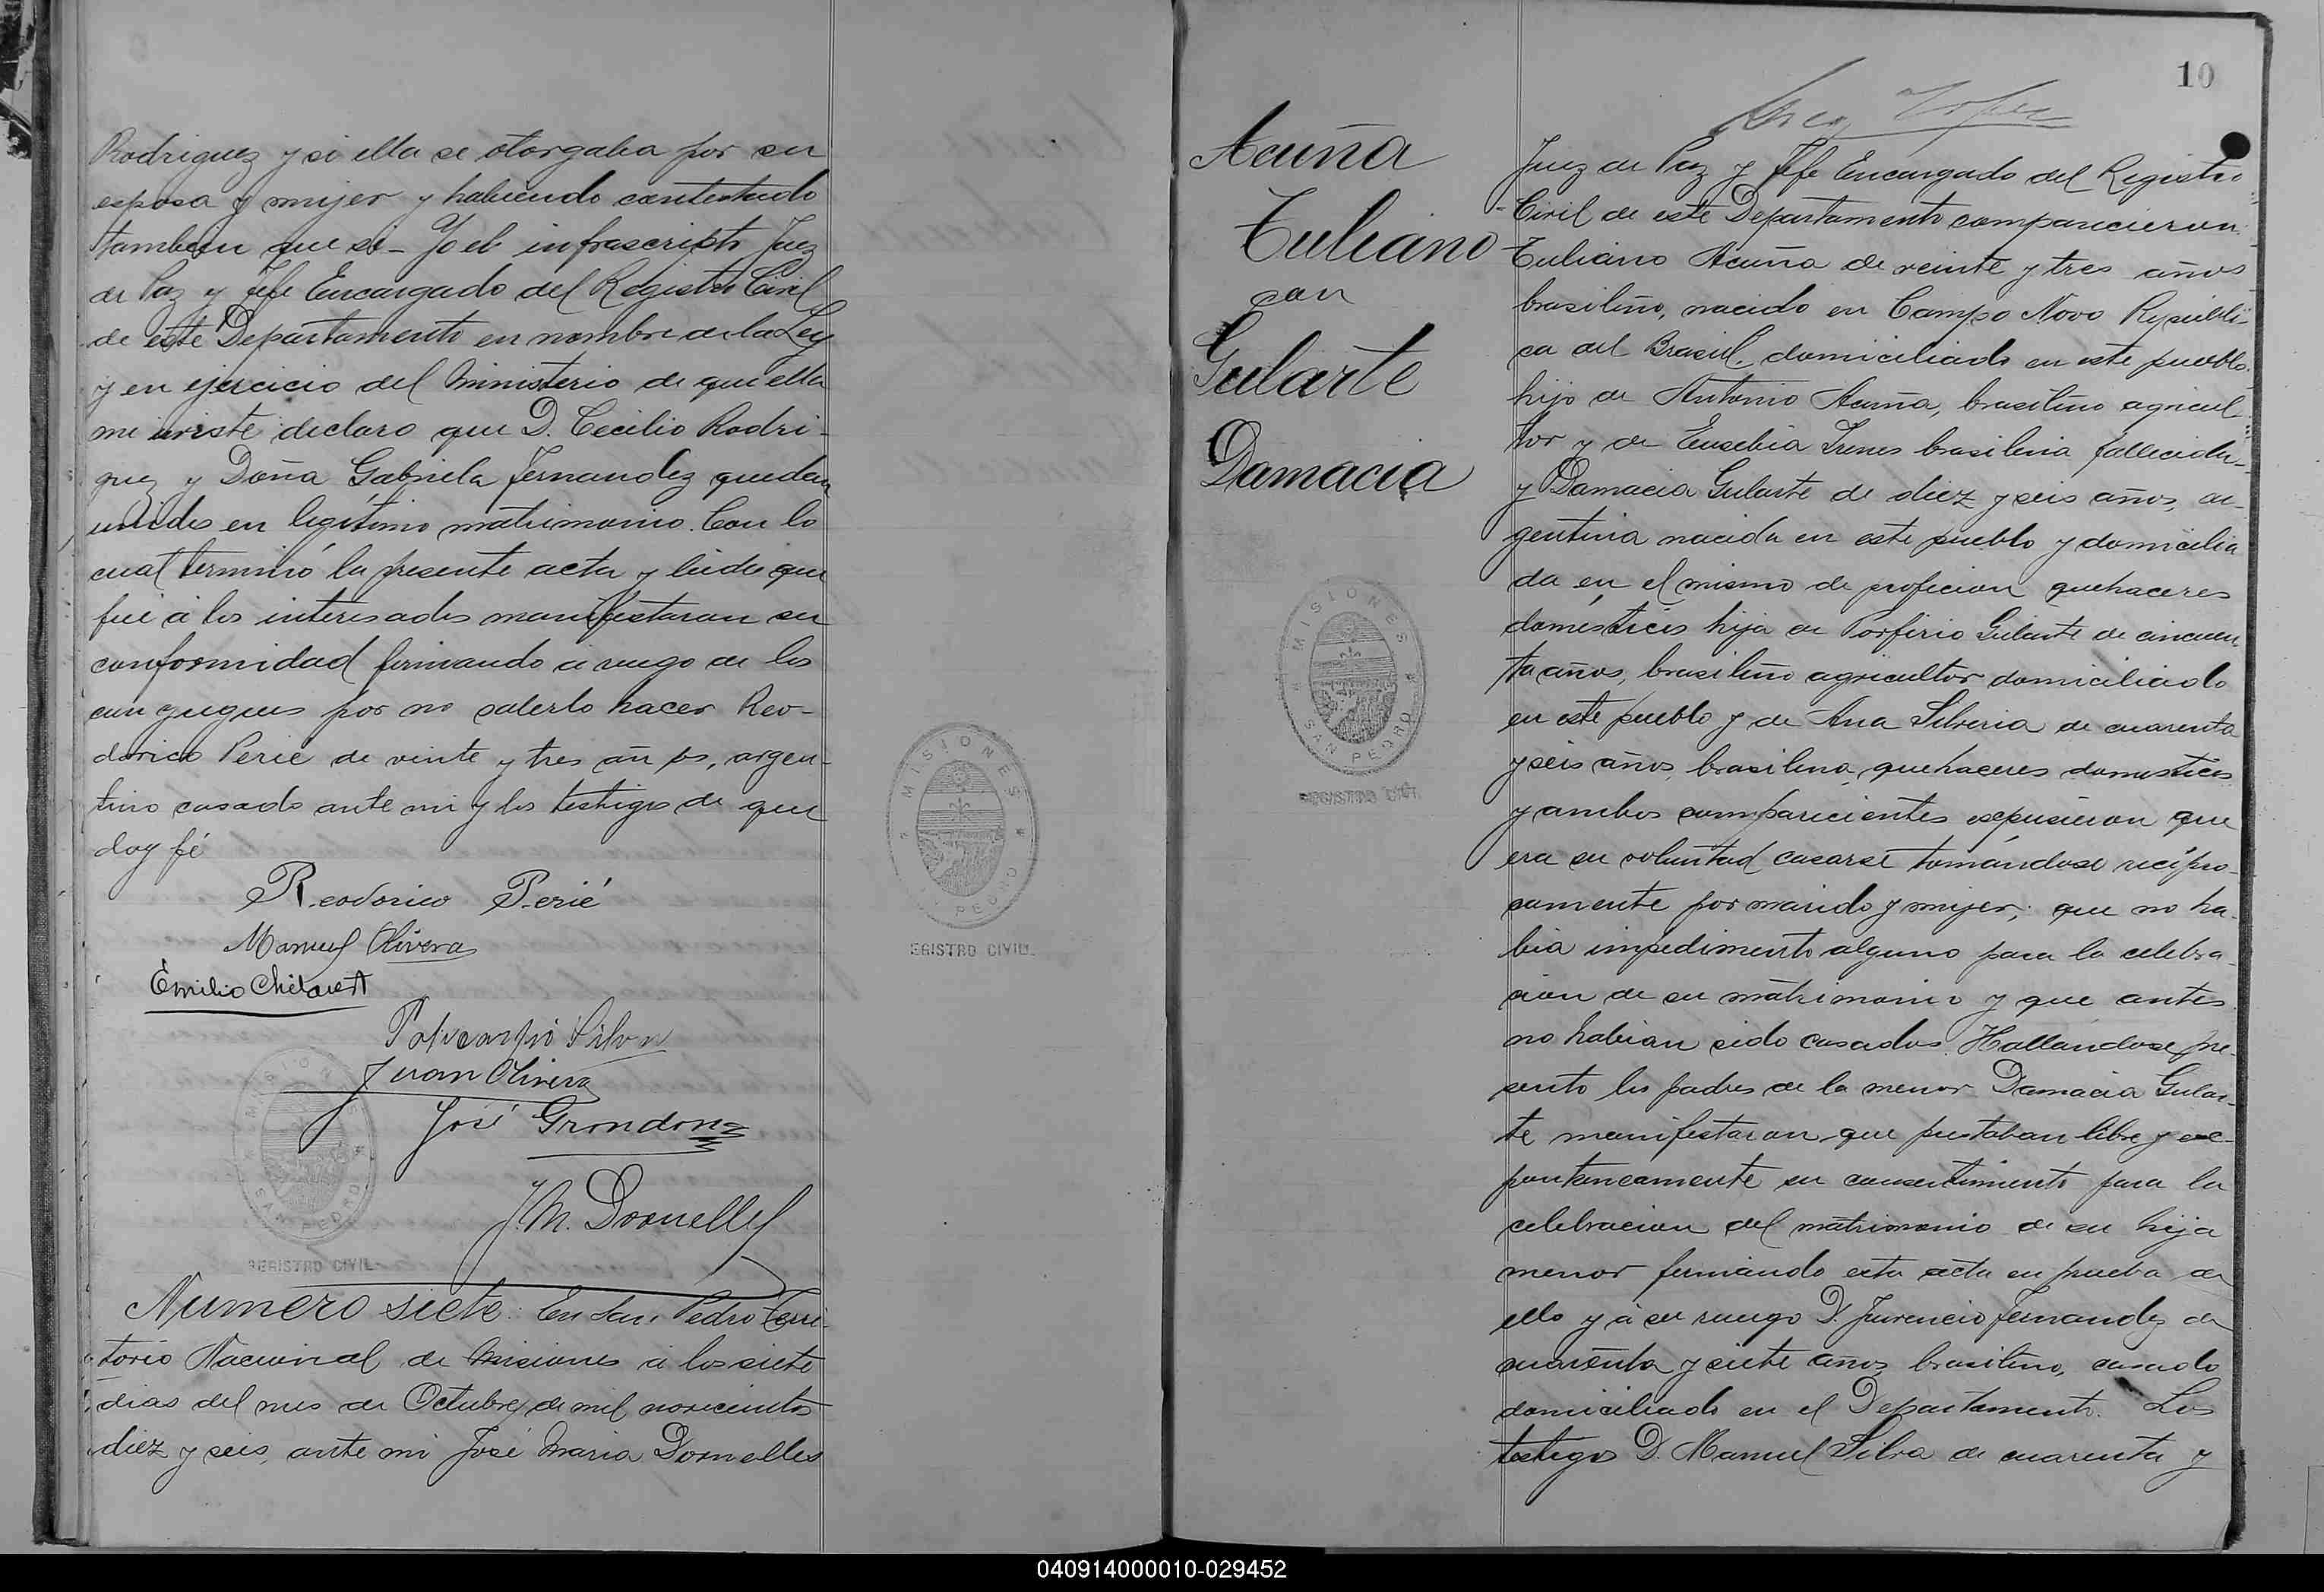 Rodriguez y si ella se otorgaba por su
esposa y mujer y habiendo contestado
tambien que si - Yo el infrascripto Juez
de Paz y Jefe Encargado del Registro Civil
de este Departamento en nombre de la Ley
y en ejercicio del Ministerio de que ella
me inviste declaro que D. Cecilio Rodri-
guez y Doña Gabriela Fernandez quedan
unidos en legítimo matrimonio. Con lo
cual terminó la presente acta y leida que
fué á los interesados manifestaron su
conformidad firmando á ruego de los
conyugues por no saberlo hacer Reo-
dorico Perié de veinte y tres años, argen-
tino casado ante mi y los testigos de que
doy fé
Reodorico Perié
Manuel Olivera
Emilio
Policarpio Silva
Juan Olivera
José Grondona
J. M. Dornelles
REGISTRO CIVIL
Numero siete: En San Pedro Terri-
torio Nacional de Misiones á los siete
dias del mes de Octubre de mil novecientos
diez y seis, ante mi José Maria Dornelles
MISIONES
SAN PEDRO
REGISTRO CIVIL
10
Acuña
Tuliano
con
Gularte
Damacia
MISIONES
SAN PEDRO
REGISTRO CIVIL
Juez de Paz y Jefe Encargado del Registro
Civil de este Departamento comparecieron
Tuliano Acuña de veinte y tres años
brasileño, nacido en Campo Novo Republi-
ca del Brasil, domiciliado en este pueblo
hijo de Antonio Acuña, brasileño agricul-
tor y de Eusebia Irenes brasilena fallecida-
y Damacia Gularte de diez y seis años, ar-
gentina nacida en este pueblo y domicilia
da en el mismo de profecion quehaceres
domésticos hija de Porfirio Gularte de cincuen
ta años, brasileño agricultor domiciliado
en este pueblo y de Ana Silveria de cuarenta
y seis años, brasilena, quehaceres domesticos
y ambos comparecientes expusieron que
era su voluntad casarse tomándose recipro-
camente por marido y mujer; que no ha-
bia impedimento alguno para la celebra-
cion de su matrimonio y que antes
no habian sido casados. Hallandose pre-
sente los padres de la menor Damacia Gular-
te manifestaron que prestaban libre y es-
pontaneamente su consentimiento para la
celebracion del matrimonio de su hija
menor firmando esta acta en prueba de
ello y á su ruego D. Juvencio Fernandez de
cuarenta y siete años brasileno, casado
domiciliado en el Departamento. Los
testigos D. Manuel Silva de cuarenta y
040914000010-029452